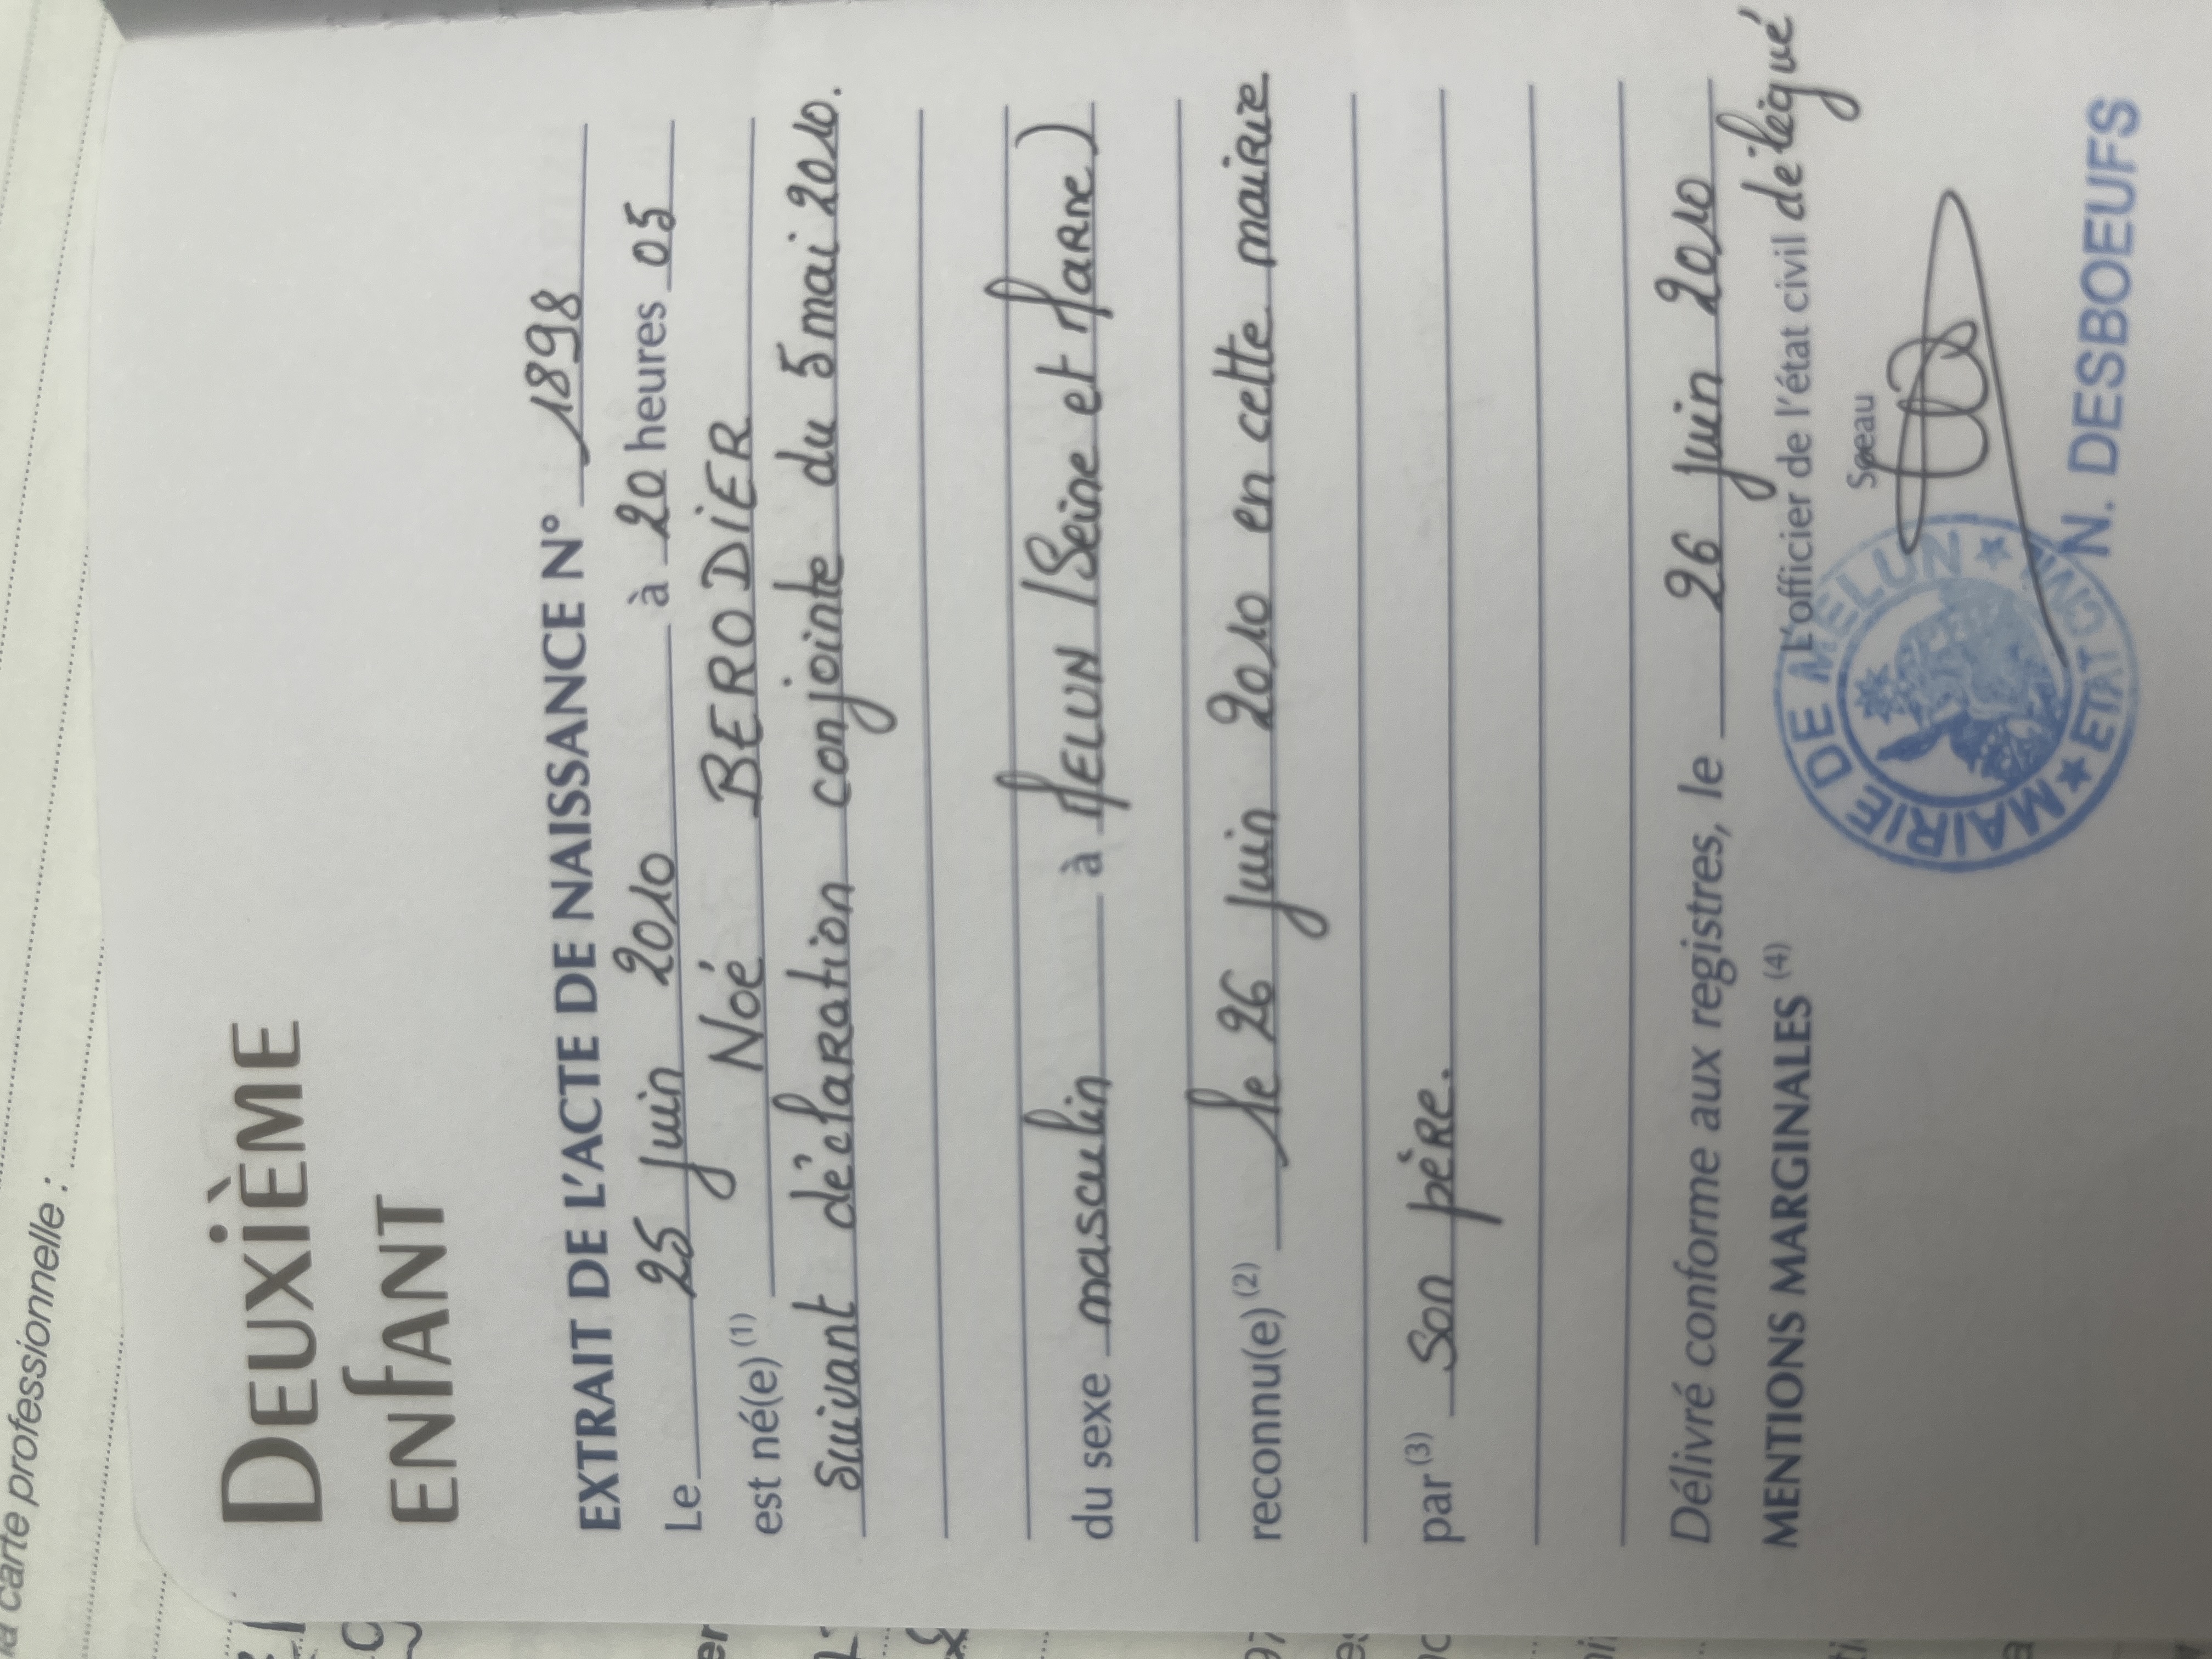 la carte professionnelle :
DEUXIÈME
ENFANT
EXTRAIT DE L'ACTE DE NAISSANCE N° 1898
Le 25 juin 2010 à 20 heures 05
est né(e) (1) Noé BERODIER
suivant déclaration conjointe du 5 mai 2010.
du sexe masculin à MELUN (Seine et Marne)
reconnu(e) (2) le 26 juin 2010 en cette mairie
par (3) son père.
Délivré conforme aux registres, le 26 juin 2010
MENTIONS MARGINALES (4)
L'officier de l'état civil délégué
Sceau
MAIRIE DE MELUN ★ ETAT CIVIL ★
N. DESBOEUFS